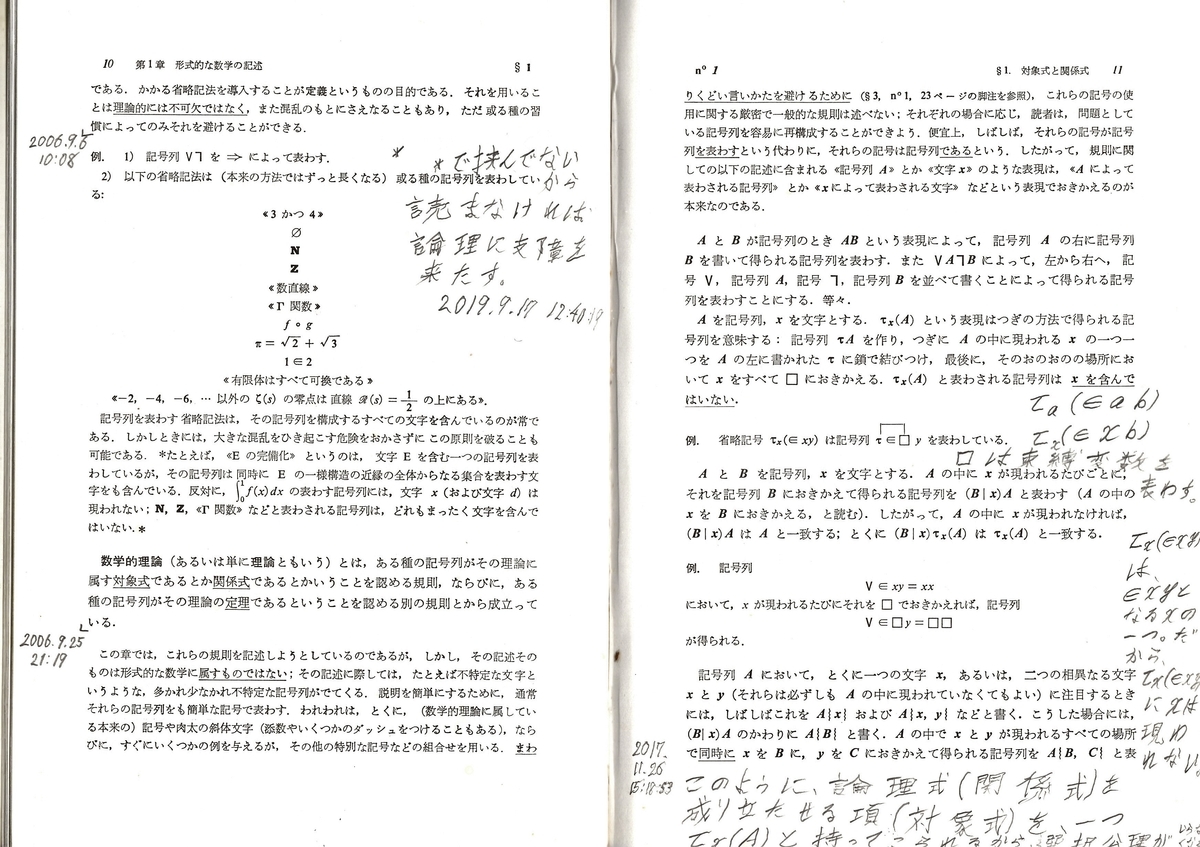 10 第1章 形式的な数学の記述 § 1
である. かかる省略記法を導入することが定義というものの目的である. それを用いるこ
とは理論的には不可欠ではなく, また混乱のもとにさえなることもあり, ただ或る種の習
慣によってのみそれを避けることができる.
2006.9.6
10:08
例. 1) 記号列 ∨⅂ を ⇒ によって表わす.
2) 以下の省略記法は (本来の方法ではずっと長くなる) 或る種の記号列を表わしてい
る:
* *で挟んでない
から
読まなければ
論理に支障を
来たす。
2019.9.17 12:40:19
《3 かつ 4》
∅
N
Z
《数直線》
《Γ 関数》
f∘g
π = √2 + √3
1∈2
《有限体はすべて可換である》
《−2, −4, −6, … 以外の ζ(s) の零点は直線 ℛ(s) = 1/2 の上にある》.
記号列を表わす省略記法は, その記号列を構成するすべての文字を含んでいるのが常で
ある. しかしときには, 大きな混乱をひき起こす危険をおかさずにこの原則を破ることも
可能である. *たとえば, 《E の完備化》というのは, 文字 E を含む一つの記号列を表
わしているが, その記号列は同時に E の一様構造の近縁の全体からなる集合を表わす文
字をも含んでいる. 反対に, ∫₀¹ f(x)dx の表わす記号列には, 文字 x (および文字 d) は
現われない; N, Z, 《Γ 関数》などと表わされる記号列は, どれもまったく文字を含んで
はいない.*
数学的理論 (あるいは単に理論ともいう) とは, ある種の記号列がその理論に
属す対象式であるとか関係式であるとかいうことを認める規則, ならびに, ある
種の記号列がその理論の定理であるということを認める別の規則とから成立って
いる.
2006.9.25
21:19
この章では, これらの規則を記述しようとしているのであるが, しかし, その記述その
ものは形式的な数学に属すものではない; その記述に際しては, たとえば不特定な文字と
いうような, 多かれ少なかれ不特定な記号列がでてくる. 説明を簡単にするために, 通常
それらの記号列をも簡単な記号で表わす. われわれは, とくに, (数学的理論に属してい
る本来の) 記号や肉太の斜体文字 (添数やいくつかのダッシュをつけることもある), なら
びに, すぐにいくつかの例を与えるが, その他の特別な記号などの組合せを用いる. まわ
n° 1 § 1. 対象式と関係式 11
りくどい言いかたを避けるために (§ 3, n° 1, 23 ページの脚注を参照), これらの記号の使
用に関する厳密で一般的な規則は述べない; それぞれの場合に応じ, 読者は, 問題として
いる記号列を容易に再構成することができよう. 便宜上, しばしば, それらの記号が記号
列を表わすという代わりに, それらの記号は記号列であるという. したがって, 規則に関
しての以下の記述に含まれる《記号列 A》とか《文字 x》のような表現は, 《A によって
表わされる記号列》とか《x によって表わされる文字》などという表現でおきかえるのが
本来なのである.
A と B が記号列のとき AB という表現によって, 記号列 A の右に記号列
B を書いて得られる記号列を表わす. また ∨A⅂B によって, 左から右へ, 記
号 ∨, 記号列 A, 記号 ⅂, 記号列 B を並べて書くことによって得られる記号
列を表わすことにする. 等々.
A を記号列, x を文字とする. τx(A) という表現はつぎの方法で得られる記
号列を意味する: 記号列 τA を作り, つぎに A の中に現われる x の一つ一
つを A の左に書かれた τ に鎖で結びつけ, 最後に, そのおのおのの場所にお
いて x をすべて □ におきかえる. τx(A) と表わされる記号列は x を含んで
はいない.
τa(∈ab)
τx(∈xb)
例. 省略記号 τx(∈xy) は記号列 τ∈□y を表わしている.
□は束縛変数を
表わす。
A と B を記号列, x を文字とする. A の中に x が現われるたびごとに,
それを記号列 B におきかえて得られる記号列を (B|x)A と表わす (A の中の
x を B におきかえる, と読む). したがって, A の中に x が現われなければ,
(B|x)A は A と一致する; とくに (B|x)τx(A) は τx(A) と一致する.
例. 記号列
∨∈xy=xx
において, x が現われるたびにそれを □ でおきかえれば, 記号列
∨∈□y=□□
が得られる.
τx(∈xy)
は、
∈xyと
なるxの
一つ。だ
から、
τx(∈xy)
にxは
現わ
れない。
記号列 A において, とくに一つの文字 x, あるいは, 二つの相異なる文字
x と y (それらは必ずしも A の中に現われていなくてもよい) に注目するとき
には, しばしばこれを A{x} および A{x, y} などと書く. こうした場合には,
(B|x)A のかわりに A{B} と書く. A の中で x と y が現われるすべての場所
で同時に x を B に, y を C におきかえて得られる記号列を A{B, C} と表
2017.
11.26
15:18:53
このように、論理式(関係式)を
成り立たせる項(対象式)を、一つ
τx(A)と持ってこられるから選択公理が